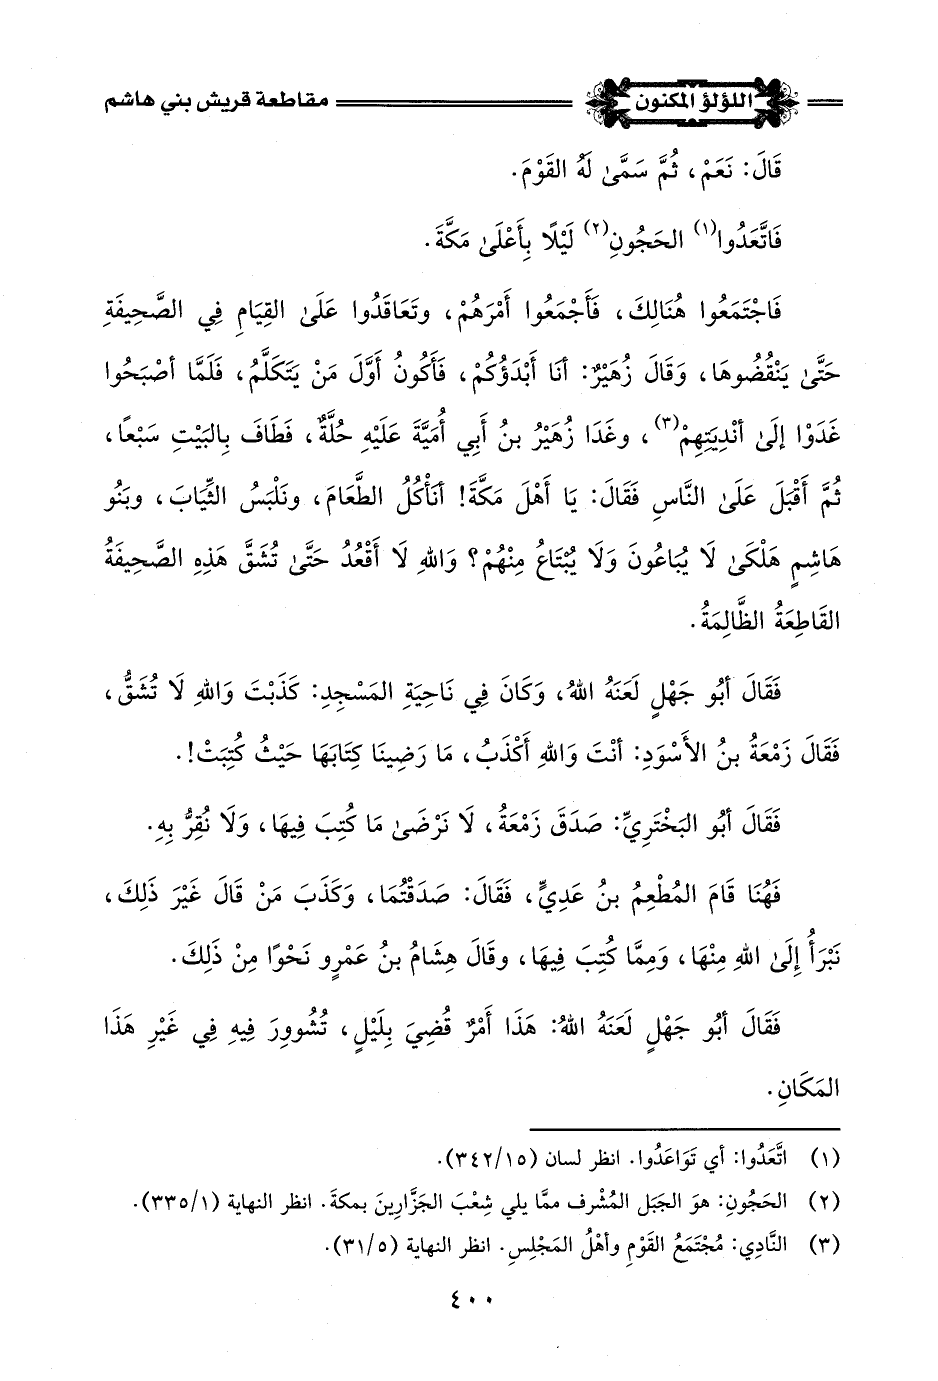 اللؤلؤ المكنون مقاطعة قريش بني هاشم
قَالَ: نَعَمْ، ثُمَّ سَمَّىٰ لَهُ القَوْمَ.
فَاتَّعَدُوا(١) الحَجُونِ(٢) لَيْلًا بِأَعْلَىٰ مَكَّةَ.
فَاجْتَمَعُوا هُنَالِكَ، فَأَجْمَعُوا أَمْرَهُمْ، وتَعَاقَدُوا عَلَىٰ القِيَامِ فِي الصَّحِيفَةِ
حَتَّىٰ يَنْقُضُوهَا، وَقَالَ زُهَيْرٌ: أنَا أَبْدَؤُكُمْ، فَأَكُونُ أَوَّلَ مَنْ يَتَكَلَّمُ، فَلَمَّا أصْبَحُوا
غَدَوْا إلَىٰ أنْدِيَتِهِمْ(٣)، وغَدَا زُهَيْرُ بنُ أَبِي أُمَيَّةَ عَلَيْهِ حُلَّةٌ، فَطَافَ بِالبَيْتِ سَبْعًا،
ثُمَّ أَقْبَلَ عَلَىٰ النَّاسِ فَقَالَ: يَا أَهْلَ مَكَّةَ! أنَأْكُلُ الطَّعَامَ، ونَلْبَسُ الثِّيَابَ، وبَنُو
هَاشِمٍ هَلْكَىٰ لَا يُبَاعُونَ وَلَا يُبْتَاعُ مِنْهُمْ؟ وَاللهِ لَا أَقْعُدُ حَتَّىٰ تُشَقَّ هَذِهِ الصَّحِيفَةُ
القَاطِعَةُ الظَّالِمَةُ.
فَقَالَ أبُو جَهْلٍ لَعَنَهُ اللهُ، وَكَانَ فِي نَاحِيَةِ المَسْجِدِ: كَذَبْتَ وَاللهِ لَا تُشَقُّ،
فَقَالَ زَمْعَةُ بنُ الأَسْوَدِ: أنْتَ وَاللهِ أَكْذَبُ، مَا رَضِينَا كِتَابَهَا حَيْثُ كُتِبَتْ!.
فَقَالَ أبُو البَخْتَرِيِّ: صَدَقَ زَمْعَةُ، لَا نَرْضَىٰ مَا كُتِبَ فِيهَا، وَلَا نُقِرُّ بِهِ.
فَهُنَا قَامَ المُطْعِمُ بنُ عَدِيٍّ، فَقَالَ: صَدَقْتُمَا، وَكَذَبَ مَنْ قَالَ غَيْرَ ذَلِكَ،
نَبْرَأُ إلَىٰ اللهِ مِنْهَا، وَمِمَّا كُتِبَ فِيهَا، وقَالَ هِشَامُ بنُ عَمْرٍو نَحْوًا مِنْ ذَلِكَ.
فَقَالَ أبُو جَهْلٍ لَعَنَهُ اللهُ: هَذَا أَمْرٌ قُضِيَ بِلَيْلٍ، تُشُوورَ فِيهِ فِي غَيْرِ هَذَا
المَكَانِ.
(١) اتَّعَدُوا: أي تَوَاعَدُوا. انظر لسان (٣٤٢/١٥).
(٢) الحَجُونِ: هوَ الجَبَل المُشْرف ممَّا يلي شِعْبَ الجَزَّارِينَ بمكةَ. انظر النهاية (٣٣٥/١).
(٣) النَّادِي: مُجْتَمَعُ القَوْمِ وأهْلُ المَجْلِسِ. انظر النهاية (٣١/٥).
٤٠٠